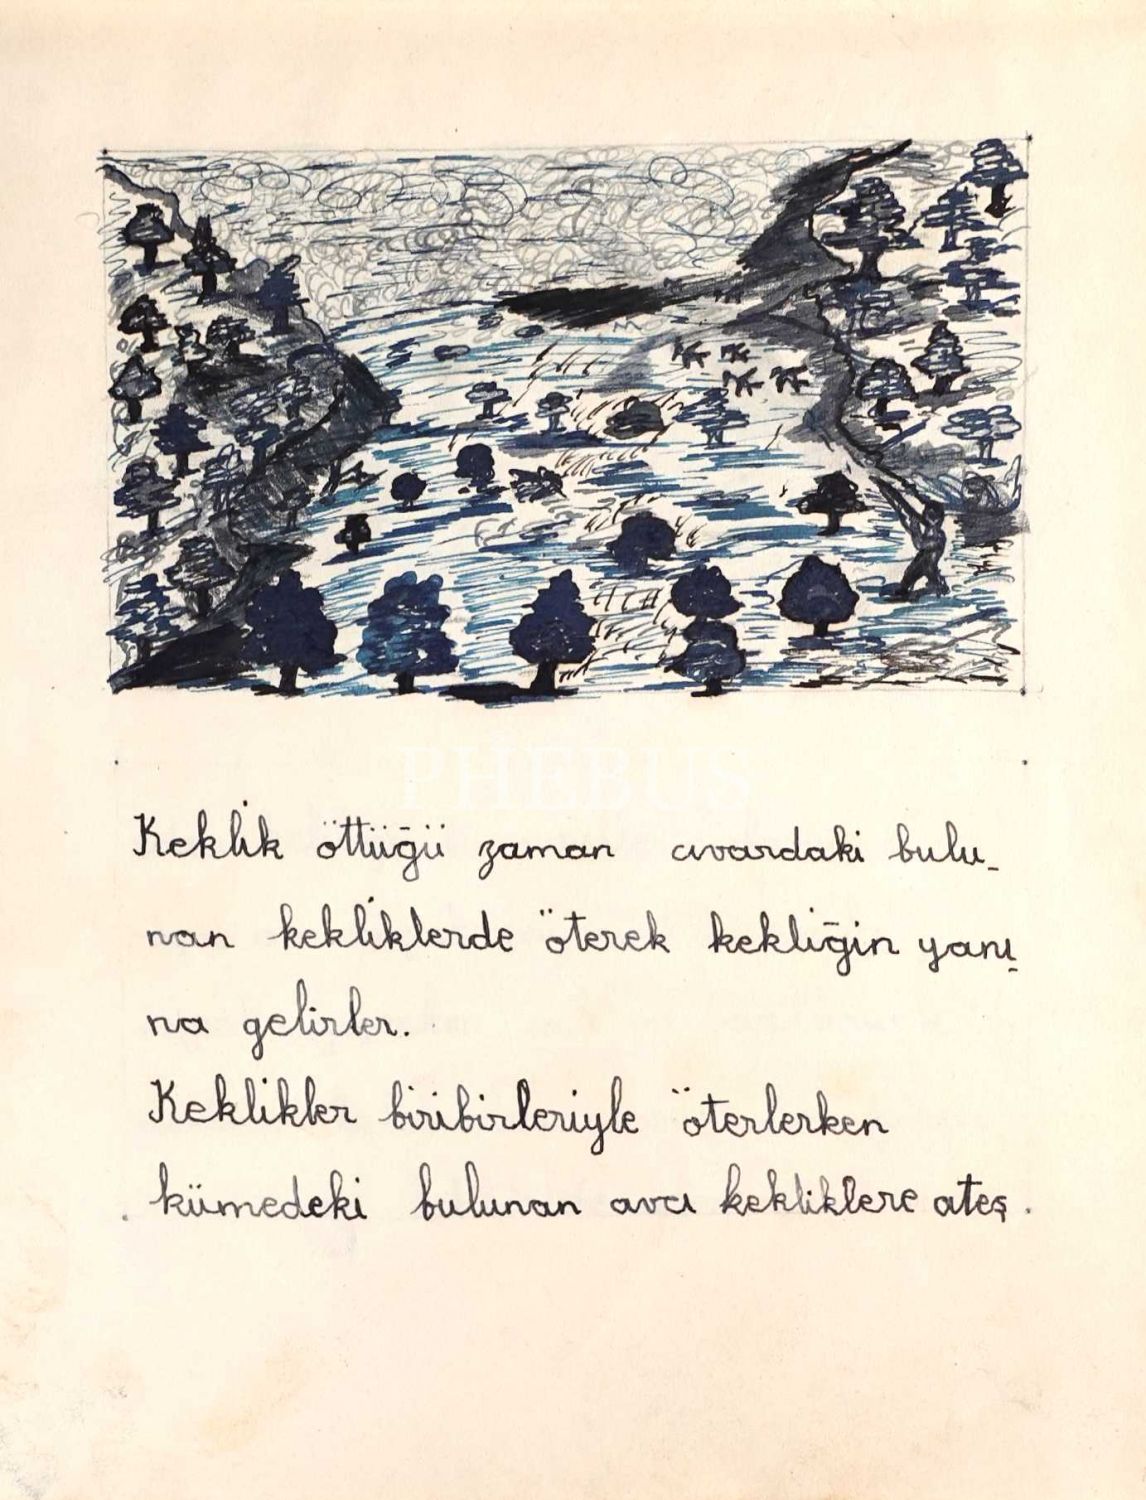 PHEBUS
Keklik öttüğü zaman civardaki bulu_
nan kekliklerde öterek kekliğin yanı_
na gelirler.
Keklikler biribirleriyle öterlerken
kümedeki bulunan avcı kekliklere ateş.